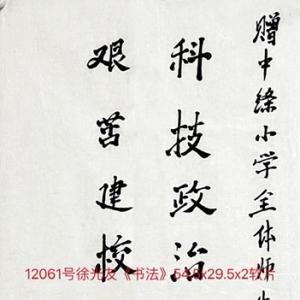 赠中绦小学全体师
科技政治
艰苦建校
12061号徐光友《书法》54.5x29.5x2软片